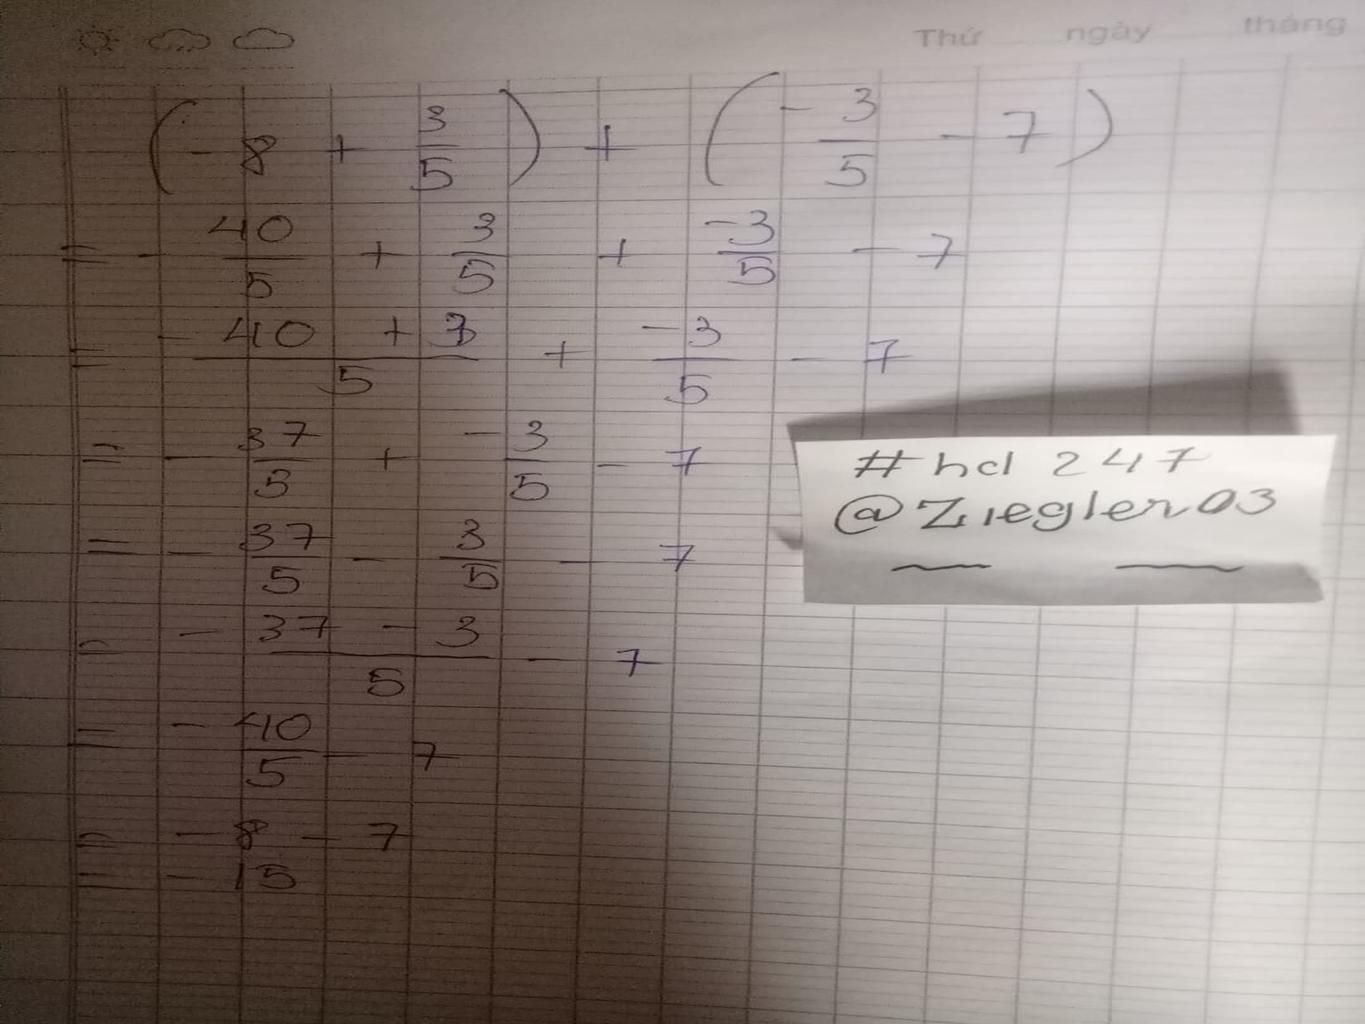 Thứ ngày tháng
(-8 + 3/5) + (-3/5 - 7)
= - 40/5 + 3/5 + -3/5 - 7
= (-40 + 3)/5 + -3/5 - 7
= - 37/3 + -3/5 - 7
= - 37/5 - 3/5 - 7
= (-37 - 3)/5 - 7
= - 40/5 - 7
= - 8 - 7
= - 15
# hd 247
@Ziegler03